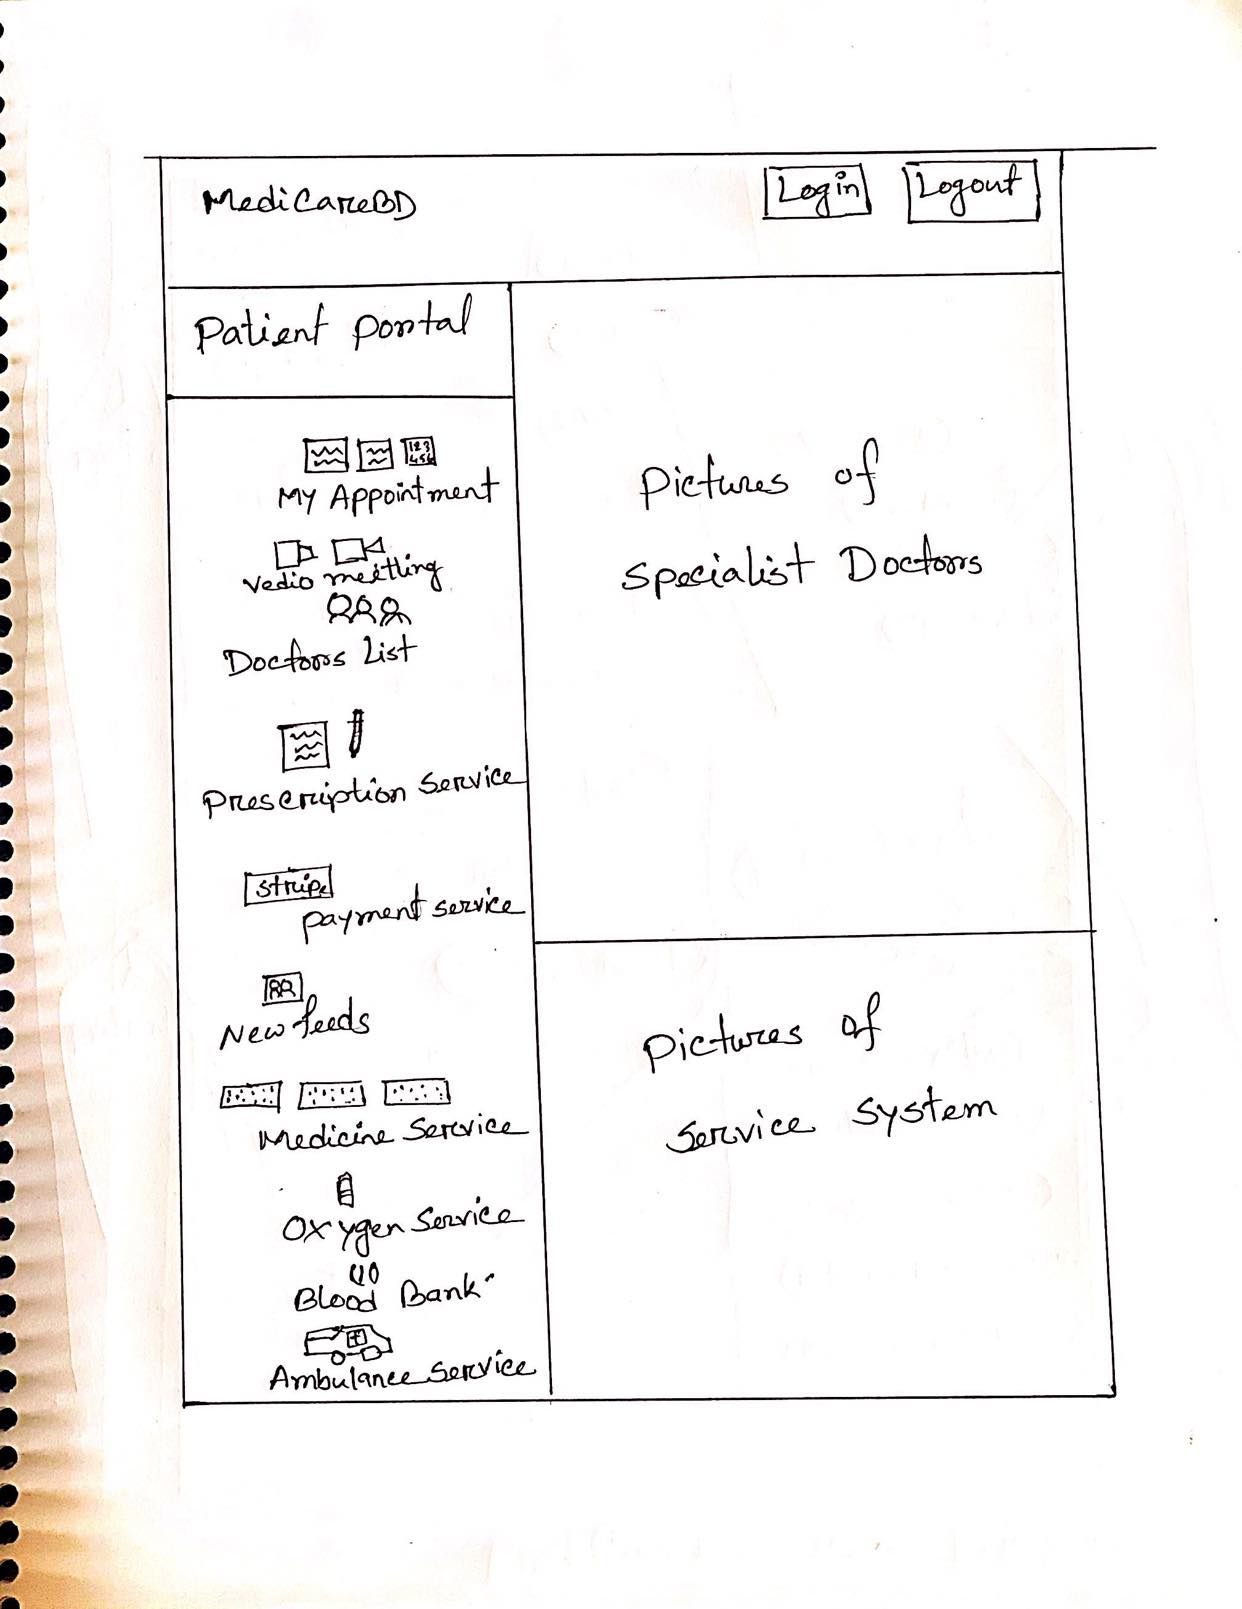 MediCareBD
Login
Logout
Patient portal
My Appointment
Vedio meitling
Doctors List
Prescription Service
Stripe
payment service
New feeds
Medicine Service
Oxygen Service
Blood Bank
Ambulance Service
Pictures of
Specialist Doctors
Pictures of
Service System